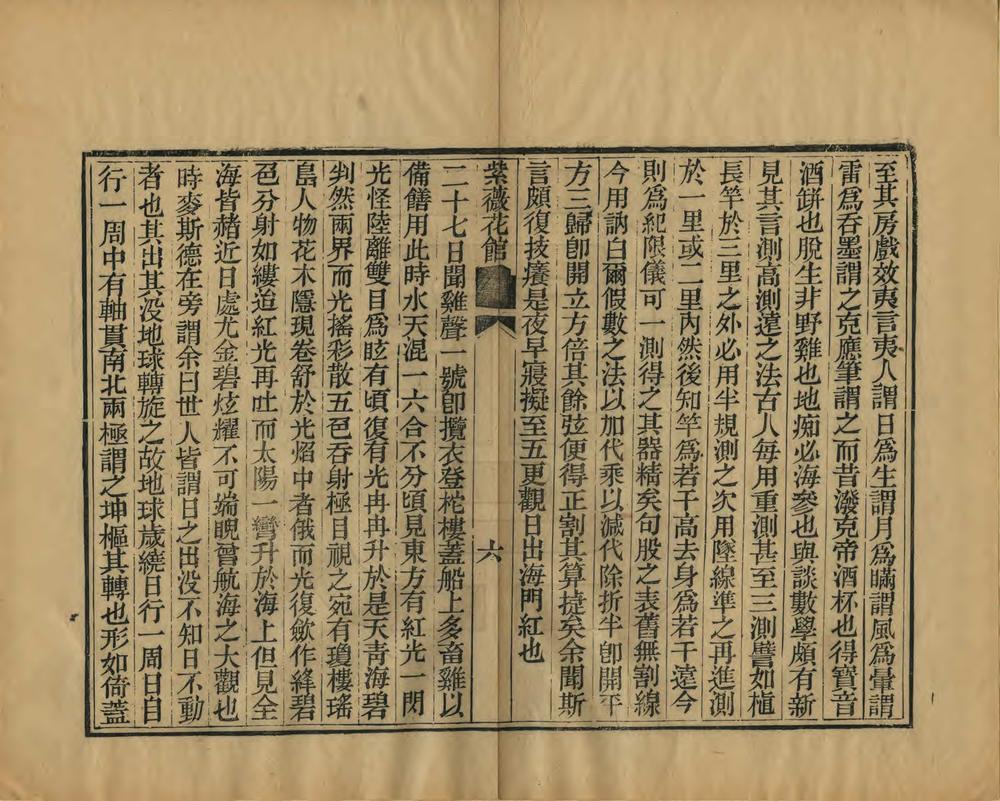 至其房戲效夷言夷人謂日爲生謂月爲瞞謂風爲暈謂
雷爲吞墨謂之克應筆謂之而昔潑克帝酒杯也得寶音
酒缾也脫生非野雞也地痴必海參也與談數學頗有新
見其言測高測遠之法古人每用重測甚至三測譬如植
長竿於三里之外必用半規測之次用墜線準之再進測
於一里或二里內然後知竿爲若干高去身爲若干遠今
則爲紀限儀可一測得之其器精矣句股之表舊無割線
今用訥白爾假數之法以加代乘以減代除折半卽開平
方三歸卽開立方倍其餘弦便得正割其算捷矣余聞斯
言頗復技癢是夜早寢擬至五更觀日出海門紅也
紫薇花館
六
二十七日聞雞聲一號卽攬衣登柁樓蓋船上多畜雞以
備饍用此時水天混一六合不分頃見東方有紅光一閃
光怪陸離雙目爲眩有頃復有光冉冉升於是天靑海碧
判然兩界而光搖彩散五色吞射極目視之宛有瓊樓瑤
島人物花木隱現卷舒於光焰中者俄而光復歛作絳碧
色分射如縷迨紅光再吐而太陽一彎升於海上但見全
海皆赭近日處尤金碧炫耀不可端睨曾航海之大觀也
時麥斯德在旁謂余曰世人皆謂日之出没不知日不動
者也其出其没地球轉旋之故地球歲繞日行一周日自
行一周中有軸貫南北兩極謂之坤樞其轉也形如倚蓋